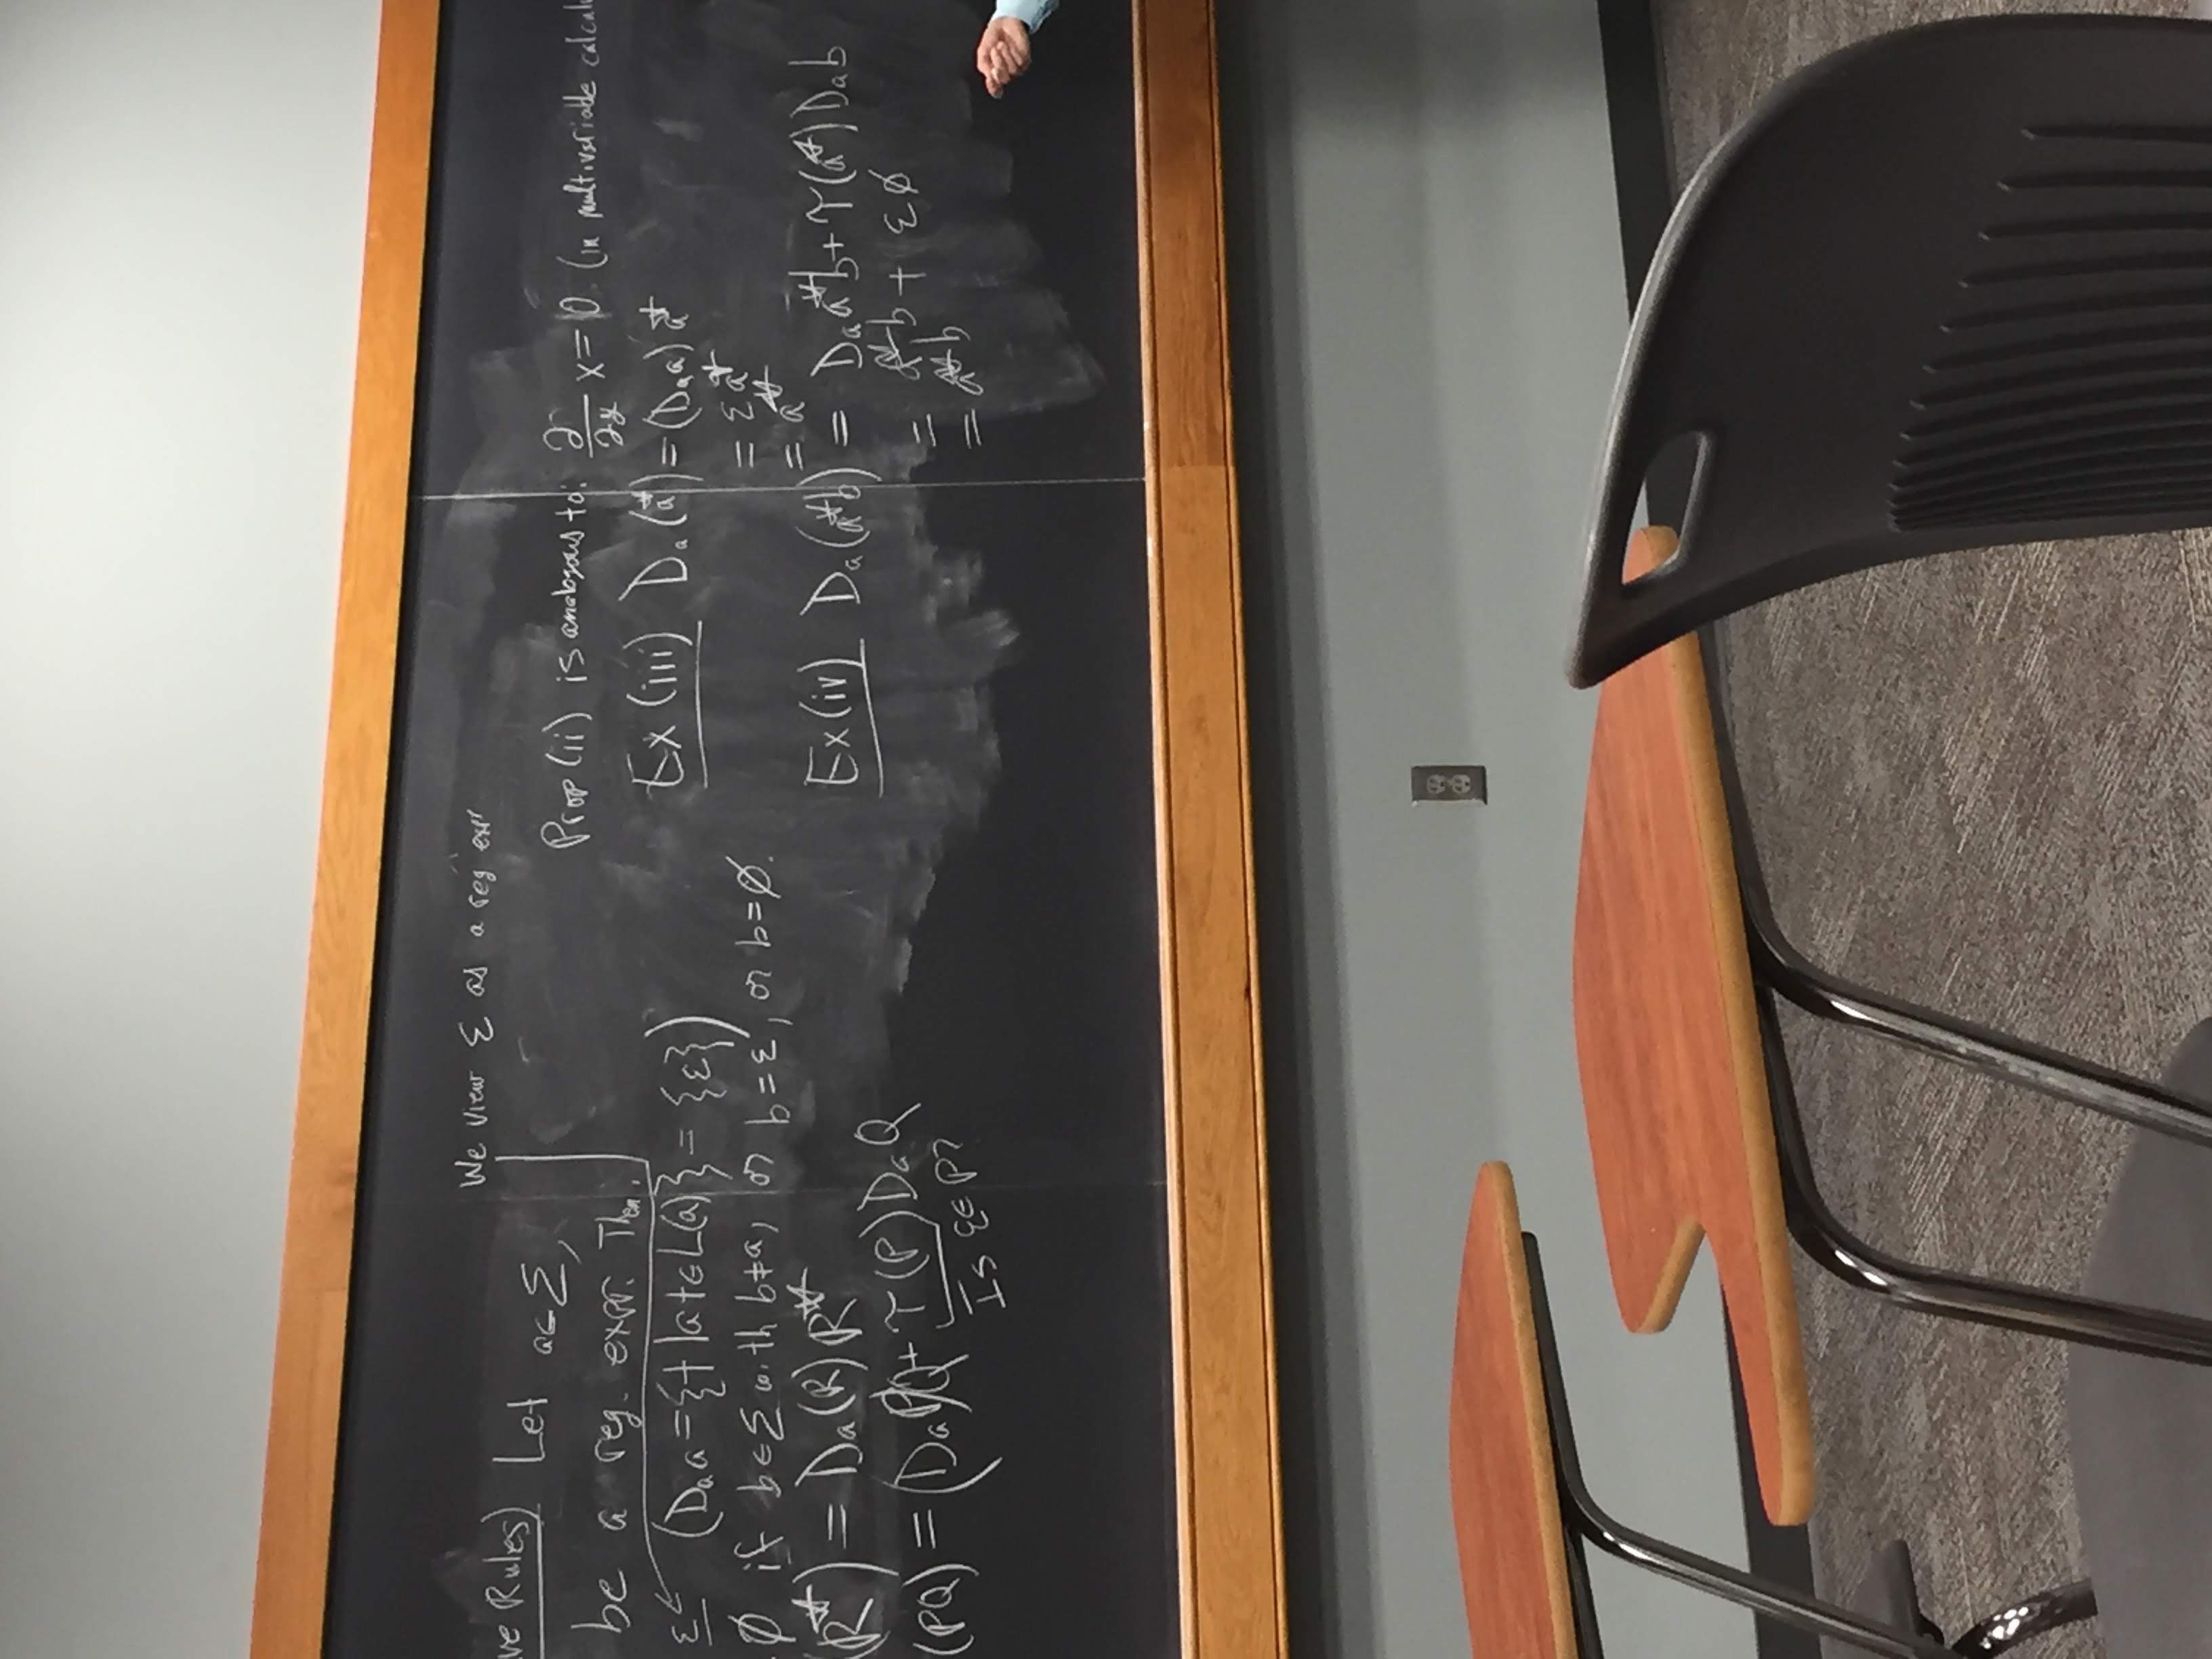 We view ε as a reg expr
ve Rules) Let a∈Σ,
be a reg. expr. Then
ε (Dₐa={t|at∈L(a)} = {ε})
∅ if b∈Σ with b≠a, or b=ε, or b=∅.
(R*) = Dₐ(R)R*
(PQ) = (DₐP)Q+ τ(P)DₐQ
Is ε∈P?
Prop (ii) is analogous to: ∂/∂y x=0. (in multivariable calcul
Ex (iii) Dₐ(a*)=(Dₐa)a*
= εa*
= a*
Ex (iv) Dₐ(a*b) = Dₐa*b+τ(a*)Dₐb
= a*b + ε∅
= a*b